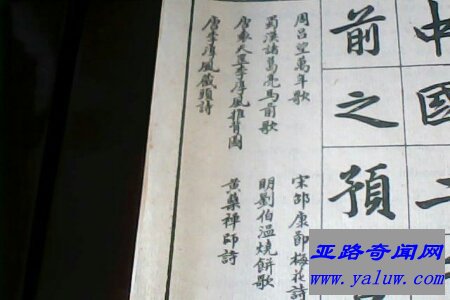 中國二
前之預
周呂望萬年歌
蜀漢諸葛亮馬前歌
唐袁天罡李淳風推背圖
唐李淳風藏頭詩
宋邵康節梅花詩
明劉伯溫燒餅歌
黃蘗禪師詩
亚路奇闻网
www.yaluw.com